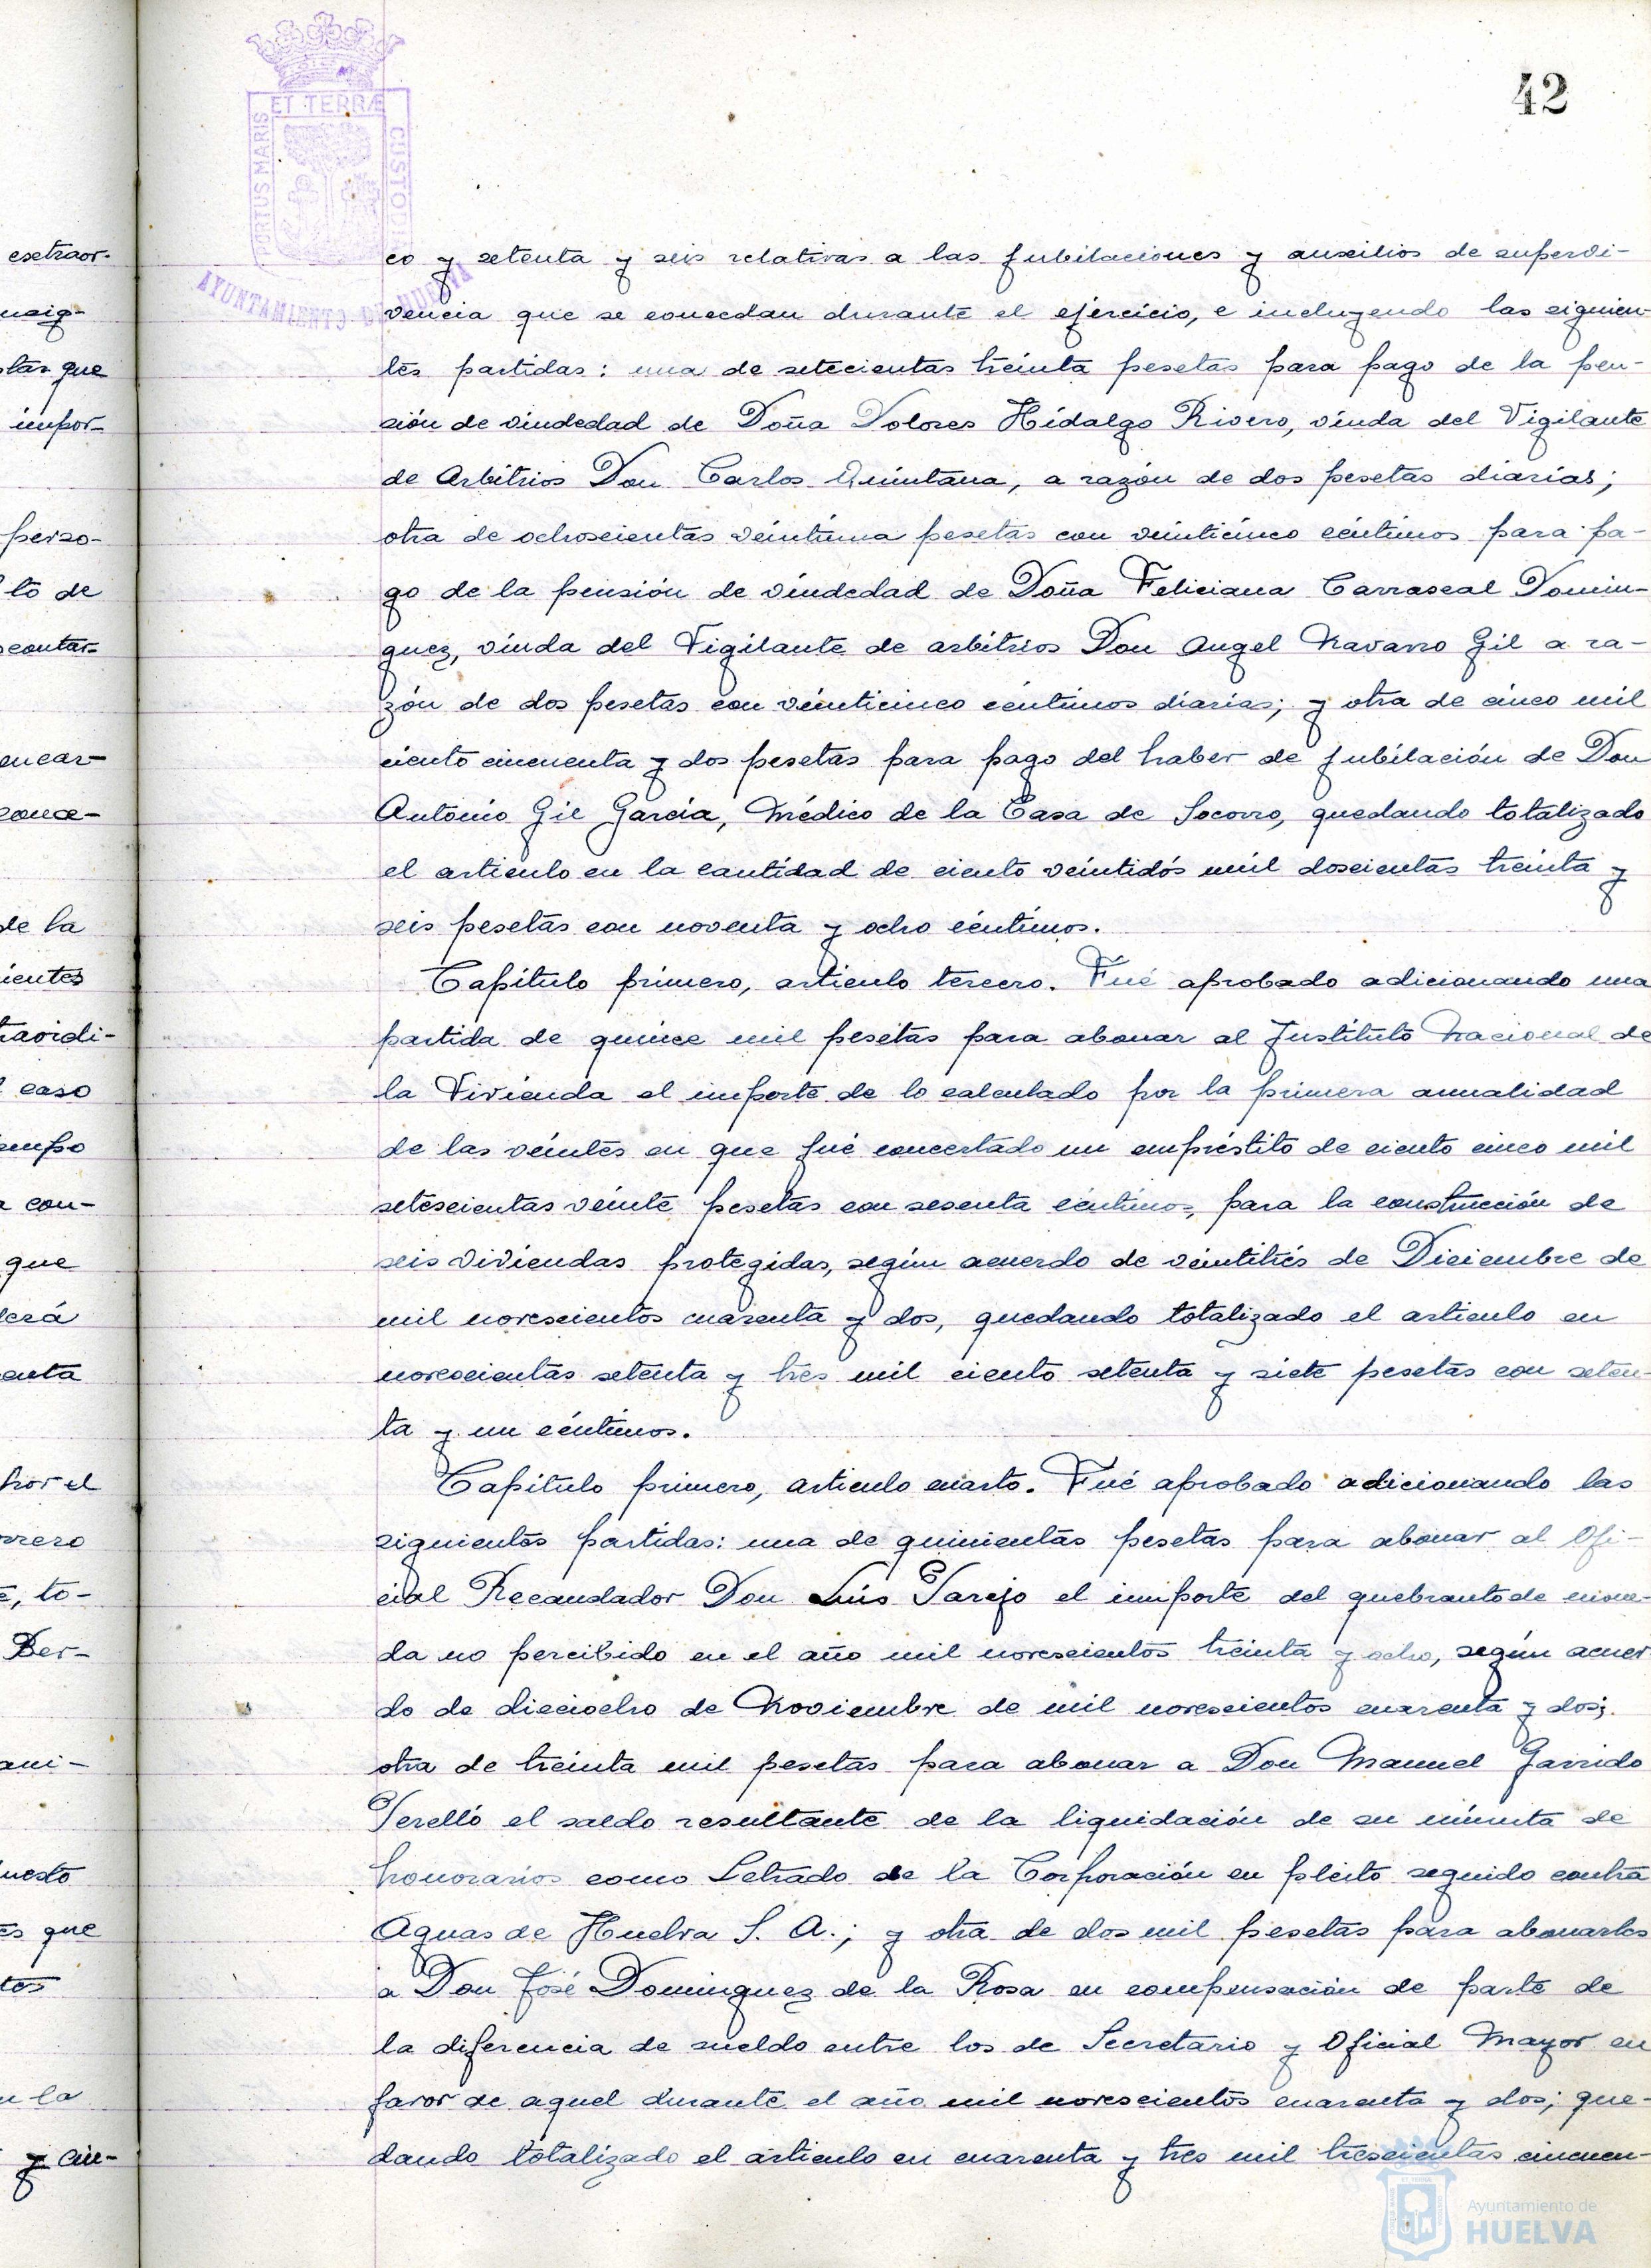 42
PORTUS MARIS
ET TERRÆ
CUSTODI
AYUNTAMIENTO DE HUELVA
co y setenta y seis relativas a las jubilaciones y auxilios de supervi-
vencia que se concedan durante el ejercicio, e incluyendo las siguien-
tes partidas: una de setecientas treinta pesetas para pago de la pen-
sión de viudedad de Doña Dolores Hidalgo Rivero, viuda del Vigilante
de Arbitrios Don Carlos Quintana, a razón de dos pesetas diarias;
otra de ochoscientas veintiuna pesetas con veinticinco céntimos para pa-
go de la pensión de viudedad de Doña Feliciana Carrascal Domin-
guez, viuda del Vigilante de arbitrios Don Angel Navarro Gil a ra-
zón de dos pesetas con veinticinco céntimos diarias; y otra de cinco mil
ciento cincuenta y dos pesetas para pago del haber de jubilación de Don
Antonio Gil García, Médico de la Casa de Socorro, quedando totalizado
el articulo en la cantidad de ciento veintidós mil doscientas treinta y
seis pesetas con noventa y ocho céntimos.
Capítulo primero, articulo tercero. Fué aprobado adicionando una
partida de quince mil pesetas para abonar al Instituto Nacional de
la Vivienda el importe de lo calculado por la primera anualidad
de las veintes en que fué concertado un empréstito de ciento cinco mil
setescientas veinte pesetas con sesenta céntimos, para la construcción de
seis viviendas protegidas, según acuerdo de veintitrés de Diciembre de
mil novescientos cuarenta y dos, quedando totalizado el articulo en
novescientas setenta y tres mil ciento setenta y siete pesetas con seten-
ta y un céntimos.
Capítulo primero, articulo cuarto. Fué aprobado adicionando las
siguientes partidas: una de quinientas pesetas para abonar al Ofi-
cial Recaudador Don Luis Tarejo el importe del quebranto de mone-
da no percibido en el año mil novescientos treinta y ocho, según acuer-
do de dieciocho de Noviembre de mil novescientos cuarenta y dos;
otra de treinta mil pesetas para abonar a Don Manuel Garrido
Perelló el saldo resultante de la liquidación de su minuta de
honorarios como Letrado de la Corporación en pleito seguido contra
Aguas de Huelva S. A.; y otra de dos mil pesetas para abonarlos
a Don José Dominguez de la Rosa en compensación de parte de
la diferencia de sueldo entre los de Secretario y Oficial Mayor en
favor de aquel durante el año mil novescientos cuarenta y dos; que-
dando totalizado el articulo en cuarenta y tres mil trescientas cincuen-
Ayuntamiento de
HUELVA